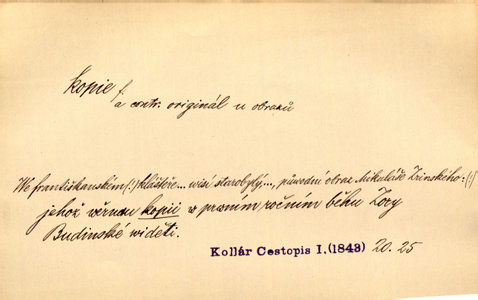 kopie f.
a contr. originál u obrazů
We františkanském (!) klášteře... wisí starobylý,..., půwodní obraz Mikuláše Zrinského: (!)
jehož věrnou kopii w prwním ročním běhu Zory
Budinské widěti.
Kollár Cestopis I. (1843) 20. 25